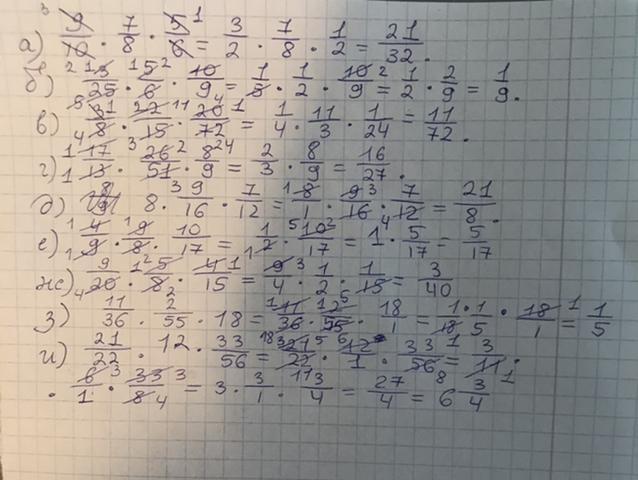 а) 9/10 · 7/8 · 5/6 = 3/2 · 7/8 · 1/2 = 21/32.
б) 13/25 · 5/6 · 10/9 = 1/5 · 1/2 · 10/9 = 1/2 · 2/9 = 1/9.
в) 3/8 · 22/15 · 20/72 = 1/4 · 11/3 · 1/24 = 11/72.
г) 17/13 · 26/51 · 8/9 = 2/3 · 8/9 = 16/27.
д) 8 · 9/16 · 7/12 = 8/1 · 9/16 · 7/12 = 21/8.
е) 4/9 · 9/8 · 10/17 = 1/2 · 10/17 = 1 · 5/17 = 5/17
ж) 9/20 · 5/8 · 4/15 = 9/4 · 1/2 · 1/15 = 3/40
з) 11/36 · 2/55 · 18 = 11/36 · 12/55 · 18/1 = 1·1/18 5 · 18/1 = 1/5
и) 21/22 · 12 · 33/56 = 21/22 · 12/1 · 33/56 = 3/11 ·
· 6/1 · 33/8 = 3 · 3/1 · 3/4 = 27/4 = 6 3/4